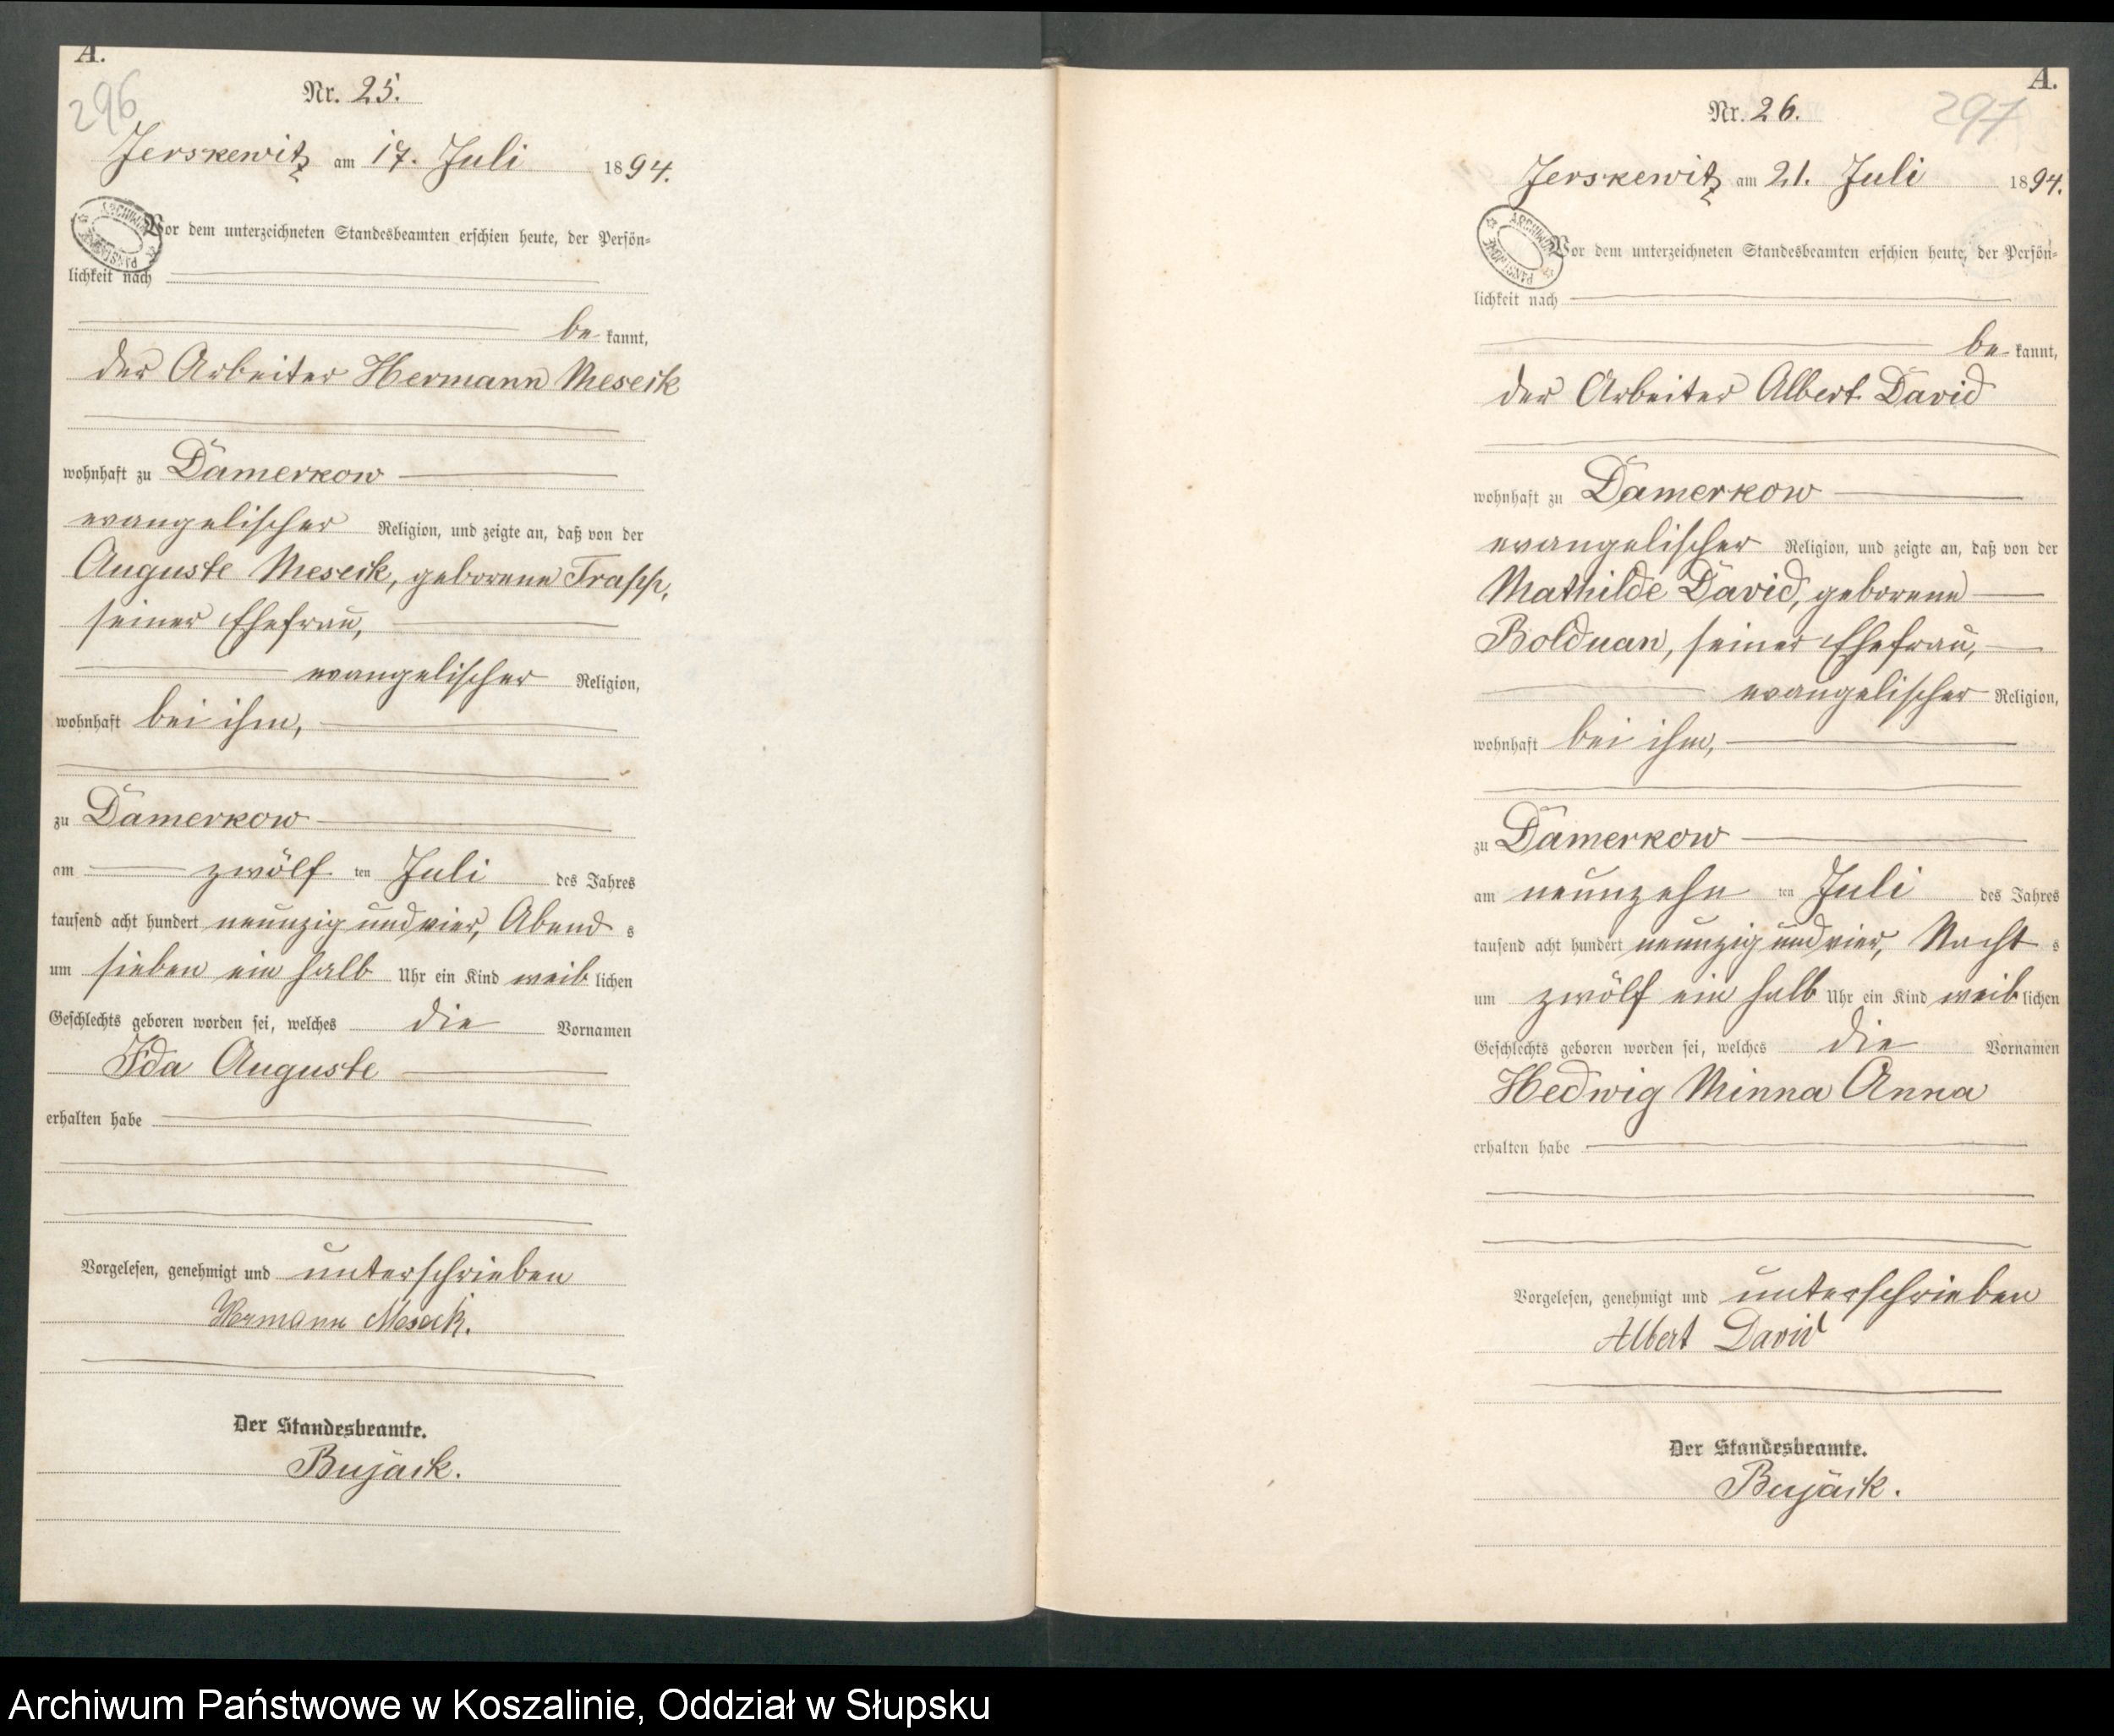 A.
296
Nr. 25.
Jerskewitz am 17. Juli 1894.
Vor dem unterzeichneten Standesbeamten erschien heute, der Persön-
lichkeit nach
be kannt,
der Arbeiter Hermann Meseck
wohnhaft zu Damerkow
evangelischer Religion, und zeigte an, daß von der
Auguste Meseck, geborene Trapp,
seiner Ehefrau,
evangelischer Religion,
wohnhaft bei ihm,
zu Damerkow
am zwölf ten Juli des Jahres
tausend acht hundert neunzig und vier, Abend s
um sieben ein halb Uhr ein Kind weib lichen
Geschlechts geboren worden sei, welches die Vornamen
Ida Auguste
erhalten habe
Vorgelesen, genehmigt und unterschrieben
Hermann Meseck.
Der Standesbeamte.
Bujäck.
A.
297
Nr. 26.
Jerskewitz am 21. Juli 1894.
Vor dem unterzeichneten Standesbeamten erschien heute, der Persön-
lichkeit nach
be kannt,
der Arbeiter Albert David
wohnhaft zu Damerkow
evangelischer Religion, und zeigte an, daß von der
Mathilde David, geborene
Bolduan, seiner Ehefrau,
evangelischer Religion,
wohnhaft bei ihm,
zu Damerkow
am neunzehn ten Juli des Jahres
tausend acht hundert neunzig und vier, Nacht s
um zwölf ein halb Uhr ein Kind weib lichen
Geschlechts geboren worden sei, welches die Vornamen
Hedwig Minna Anna
erhalten habe
Vorgelesen, genehmigt und unterschrieben
Albert David
Der Standesbeamte.
Bujäck.
Archiwum Państwowe w Koszalinie, Oddział w Słupsku